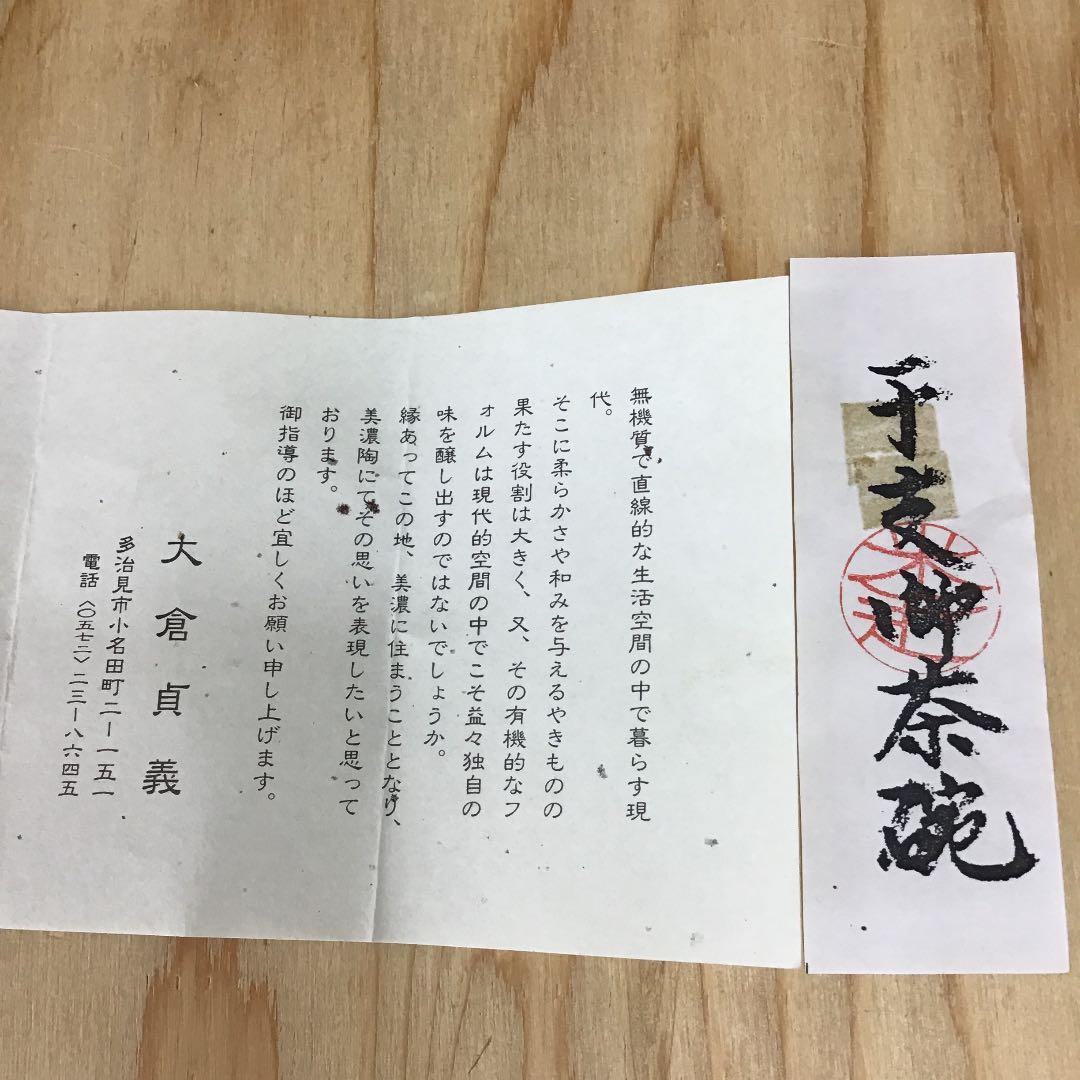 干支御茶碗
無機質で直線的な生活空間の中で暮らす現
代。
そこに柔らかさや和みを与えるやきものの
果たす役割は大きく、又、その有機的なフ
ォルムは現代的空間の中でこそ益々独自の
味を醸し出すのではないでしょうか。
縁あってこの地、美濃に住まうこととなり、
美濃陶にてその思いを表現したいと思って
おります。
御指導のほど宜しくお願い申し上げます。
大倉貞義
多治見市小名田町二ー一五一
電話〈〇五七二〉二三ー八六四五